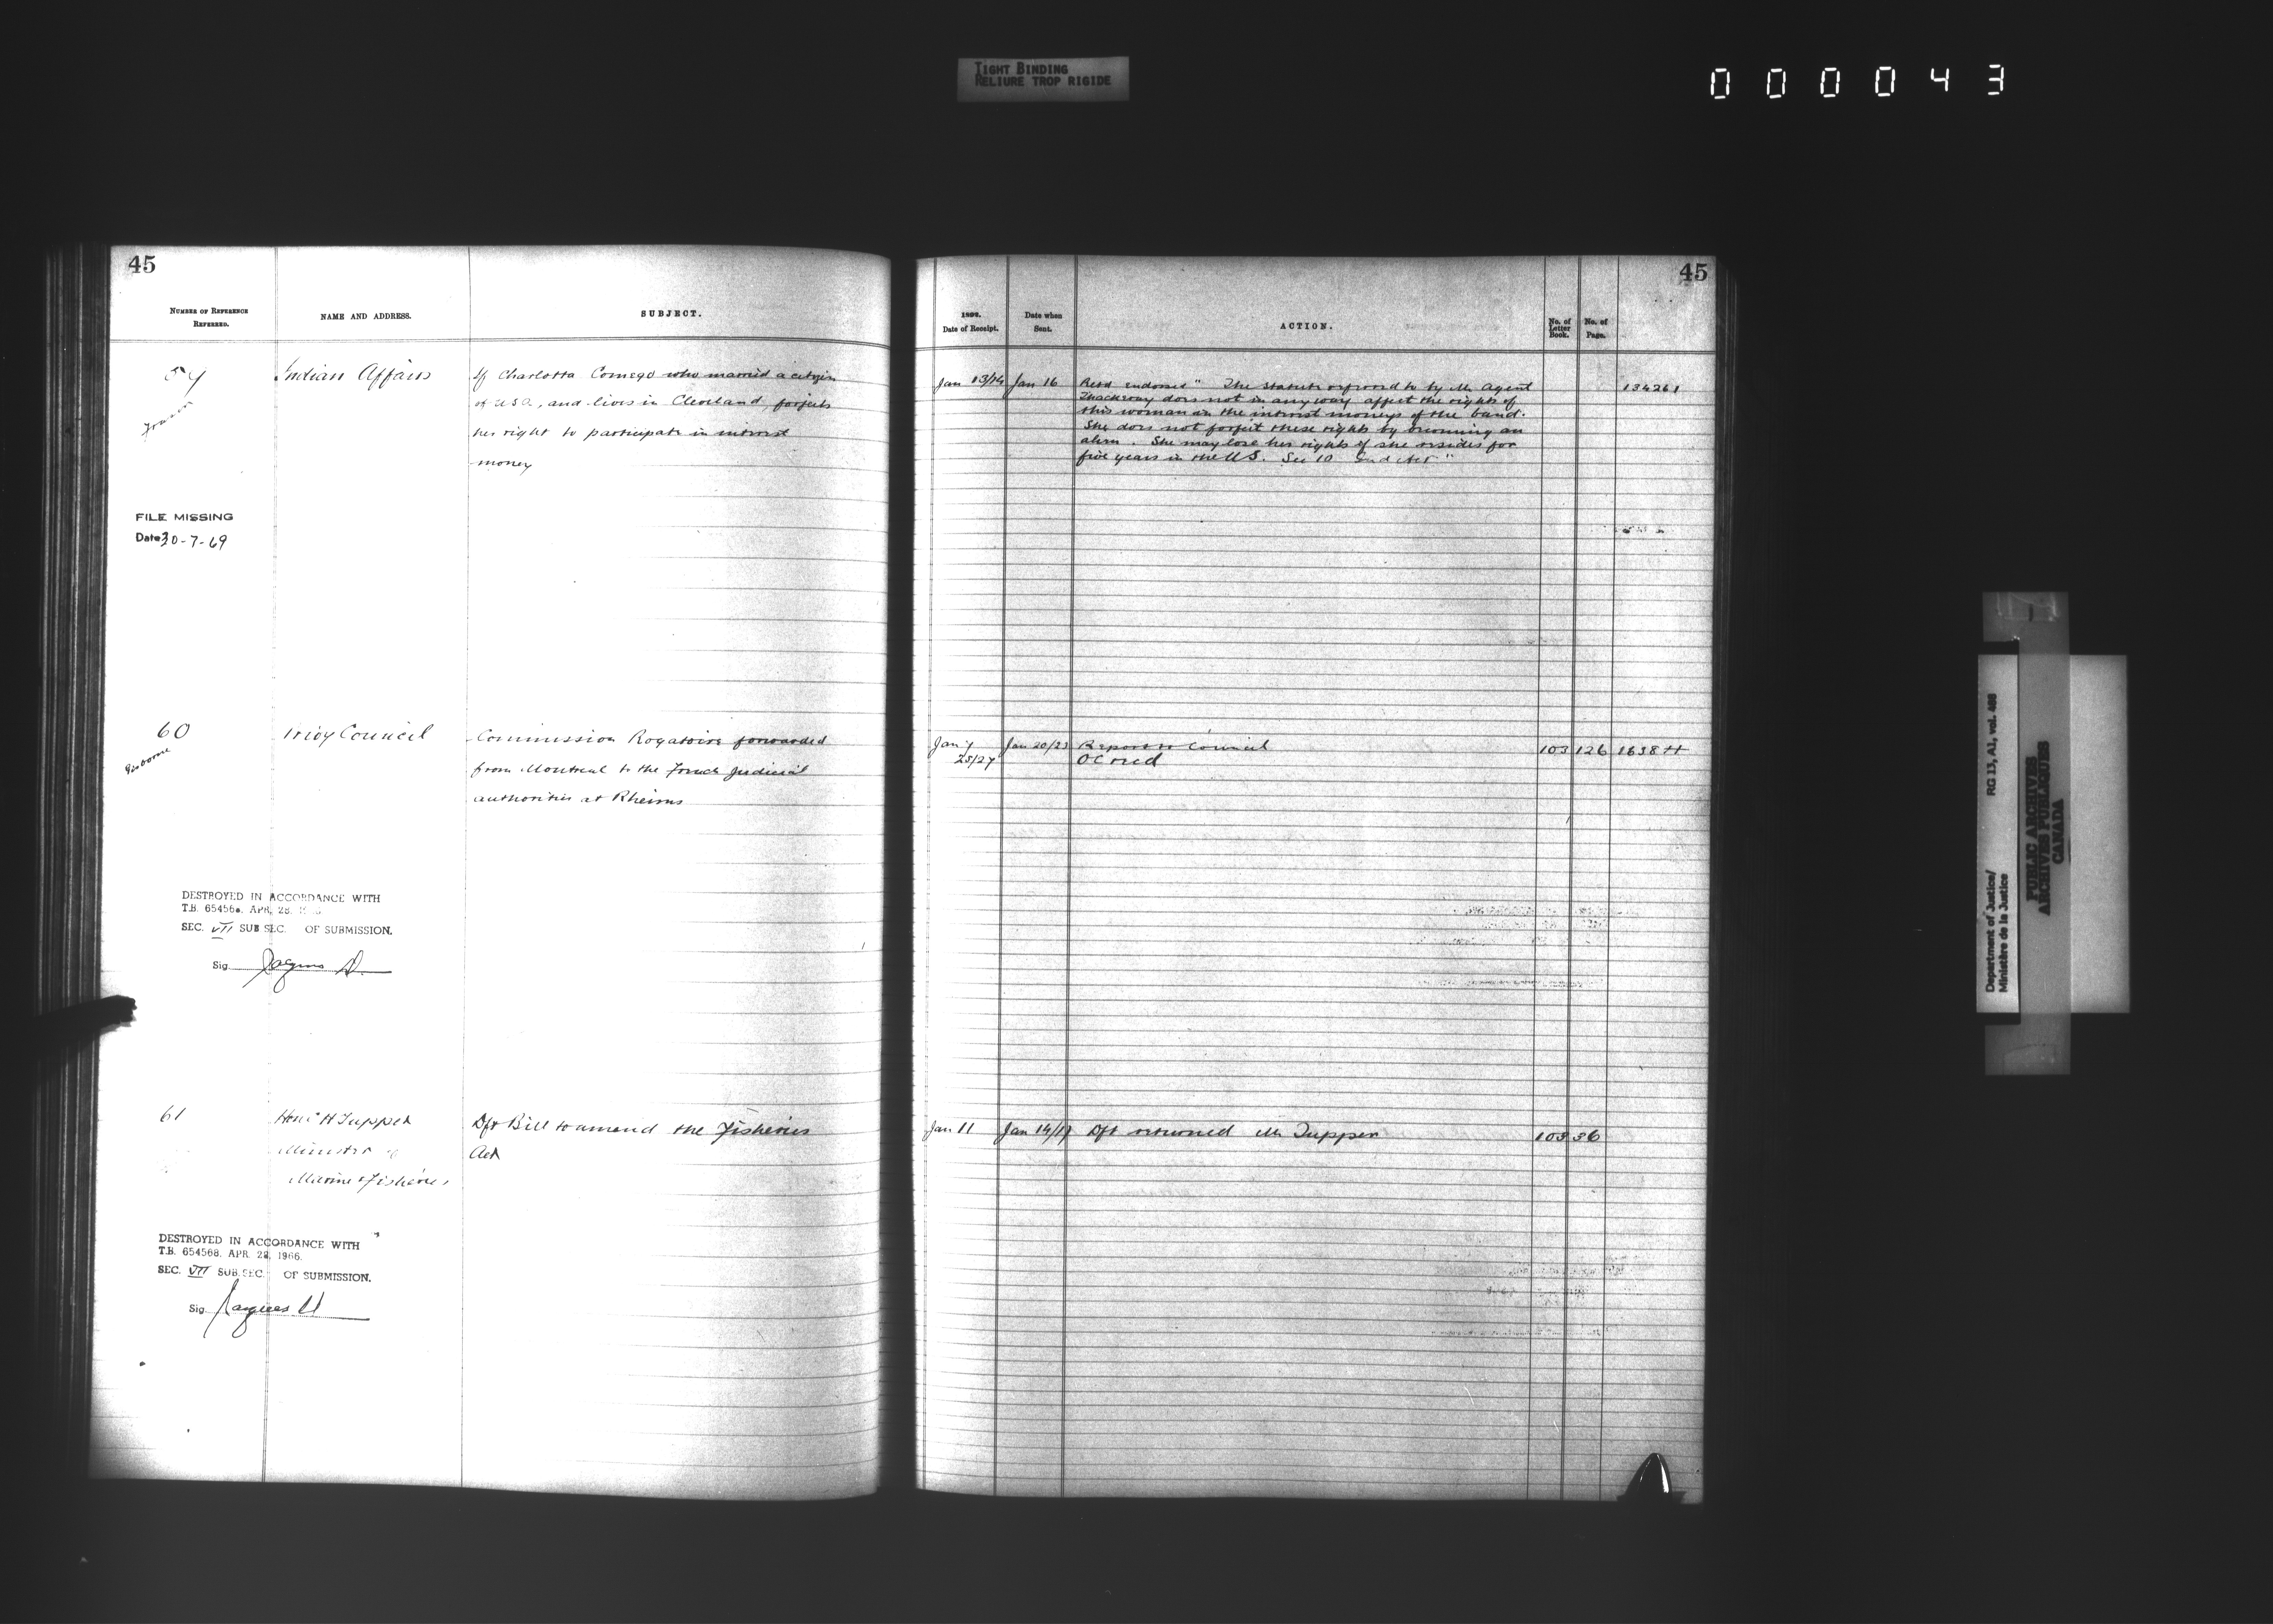 TIGHT BINDING
RELIURE TROP RIGIDE
000043
45
NUMBER OF REFERENCE
REFERRED.
NAME AND ADDRESS.
SUBJECT.
59
Indian Affairs
If Charlotta Comego who married a citizen
of USA, and lives in Cleveland, forfeits
her right to participate in interest
money
FILE MISSING
Date 30-7-69
60
Gisborne
Privy Council
Commission Rogatoire forwarded
from Montreal to the French Judicial
authorities at Rheims
DESTROYED IN ACCORDANCE WITH
T.B. 654568. APR. 28.
SEC. VII SUB SEC. OF SUBMISSION.
Sig.
61
Hon C H Tupper
Minister of
Marine & Fisheries
Dft Bill to amend the Fisheries
Act
DESTROYED IN ACCORDANCE WITH
T.B. 654568. APR. 28, 1966.
SEC. VII SUB.SEC. OF SUBMISSION.
Sig. Jacques
45
Date of Receipt.
Date when
Sent.
ACTION.
No. of
Letter
Book.
No. of
Page.
Jan 13/14 Jan 16 Retd endorsed "The statute referred to by Mr Agent 134261
Thackeray does not in any way affect the rights of
this woman in the interest moneys of the band.
She does not forfeit these rights by becoming an
alien. She may lose her rights if she resides for
five years in the US. Sec 10 Ind Act"
Jan 9 Jan 20/23 Report to Council 103 126 1638
25/27 OC recd
Jan 11 Jan 14/17 Dft returned Mr Tupper 103 36
Department of Justice/
Ministère de la Justice
RG 13, A1, vol. 488
PUBLIC ARCHIVES
ARCHIVES PUBLIQUES
CANADA